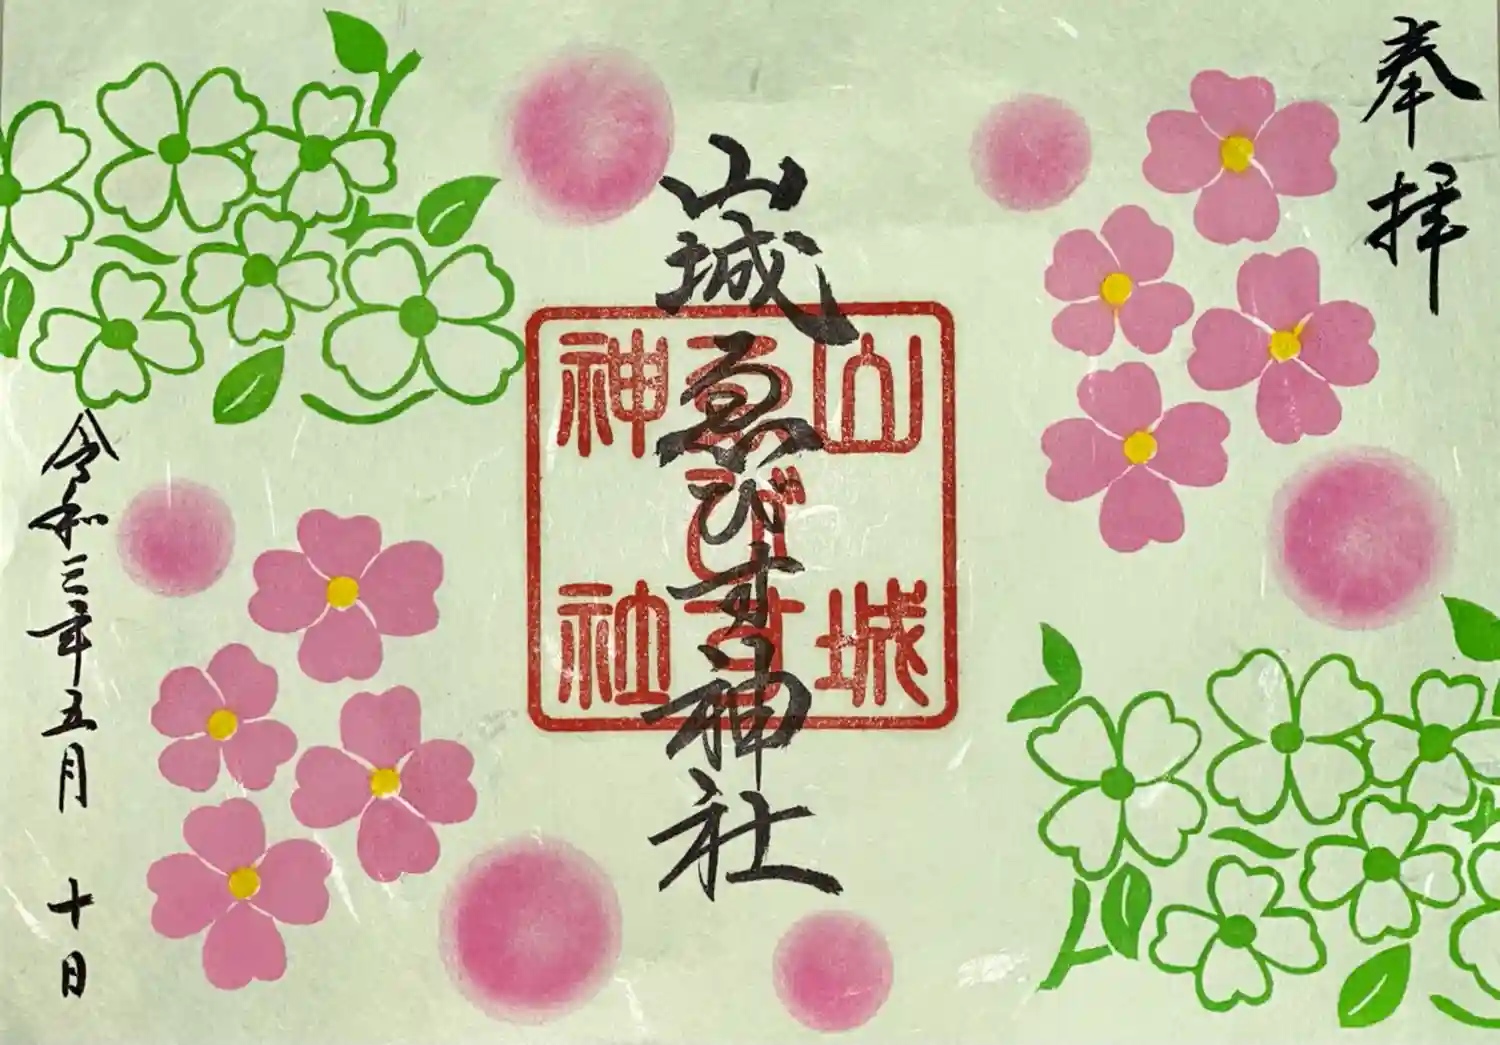 奉拝
山城ゑびす神社
山城
ゑびす
神社
令和三年五月 十日